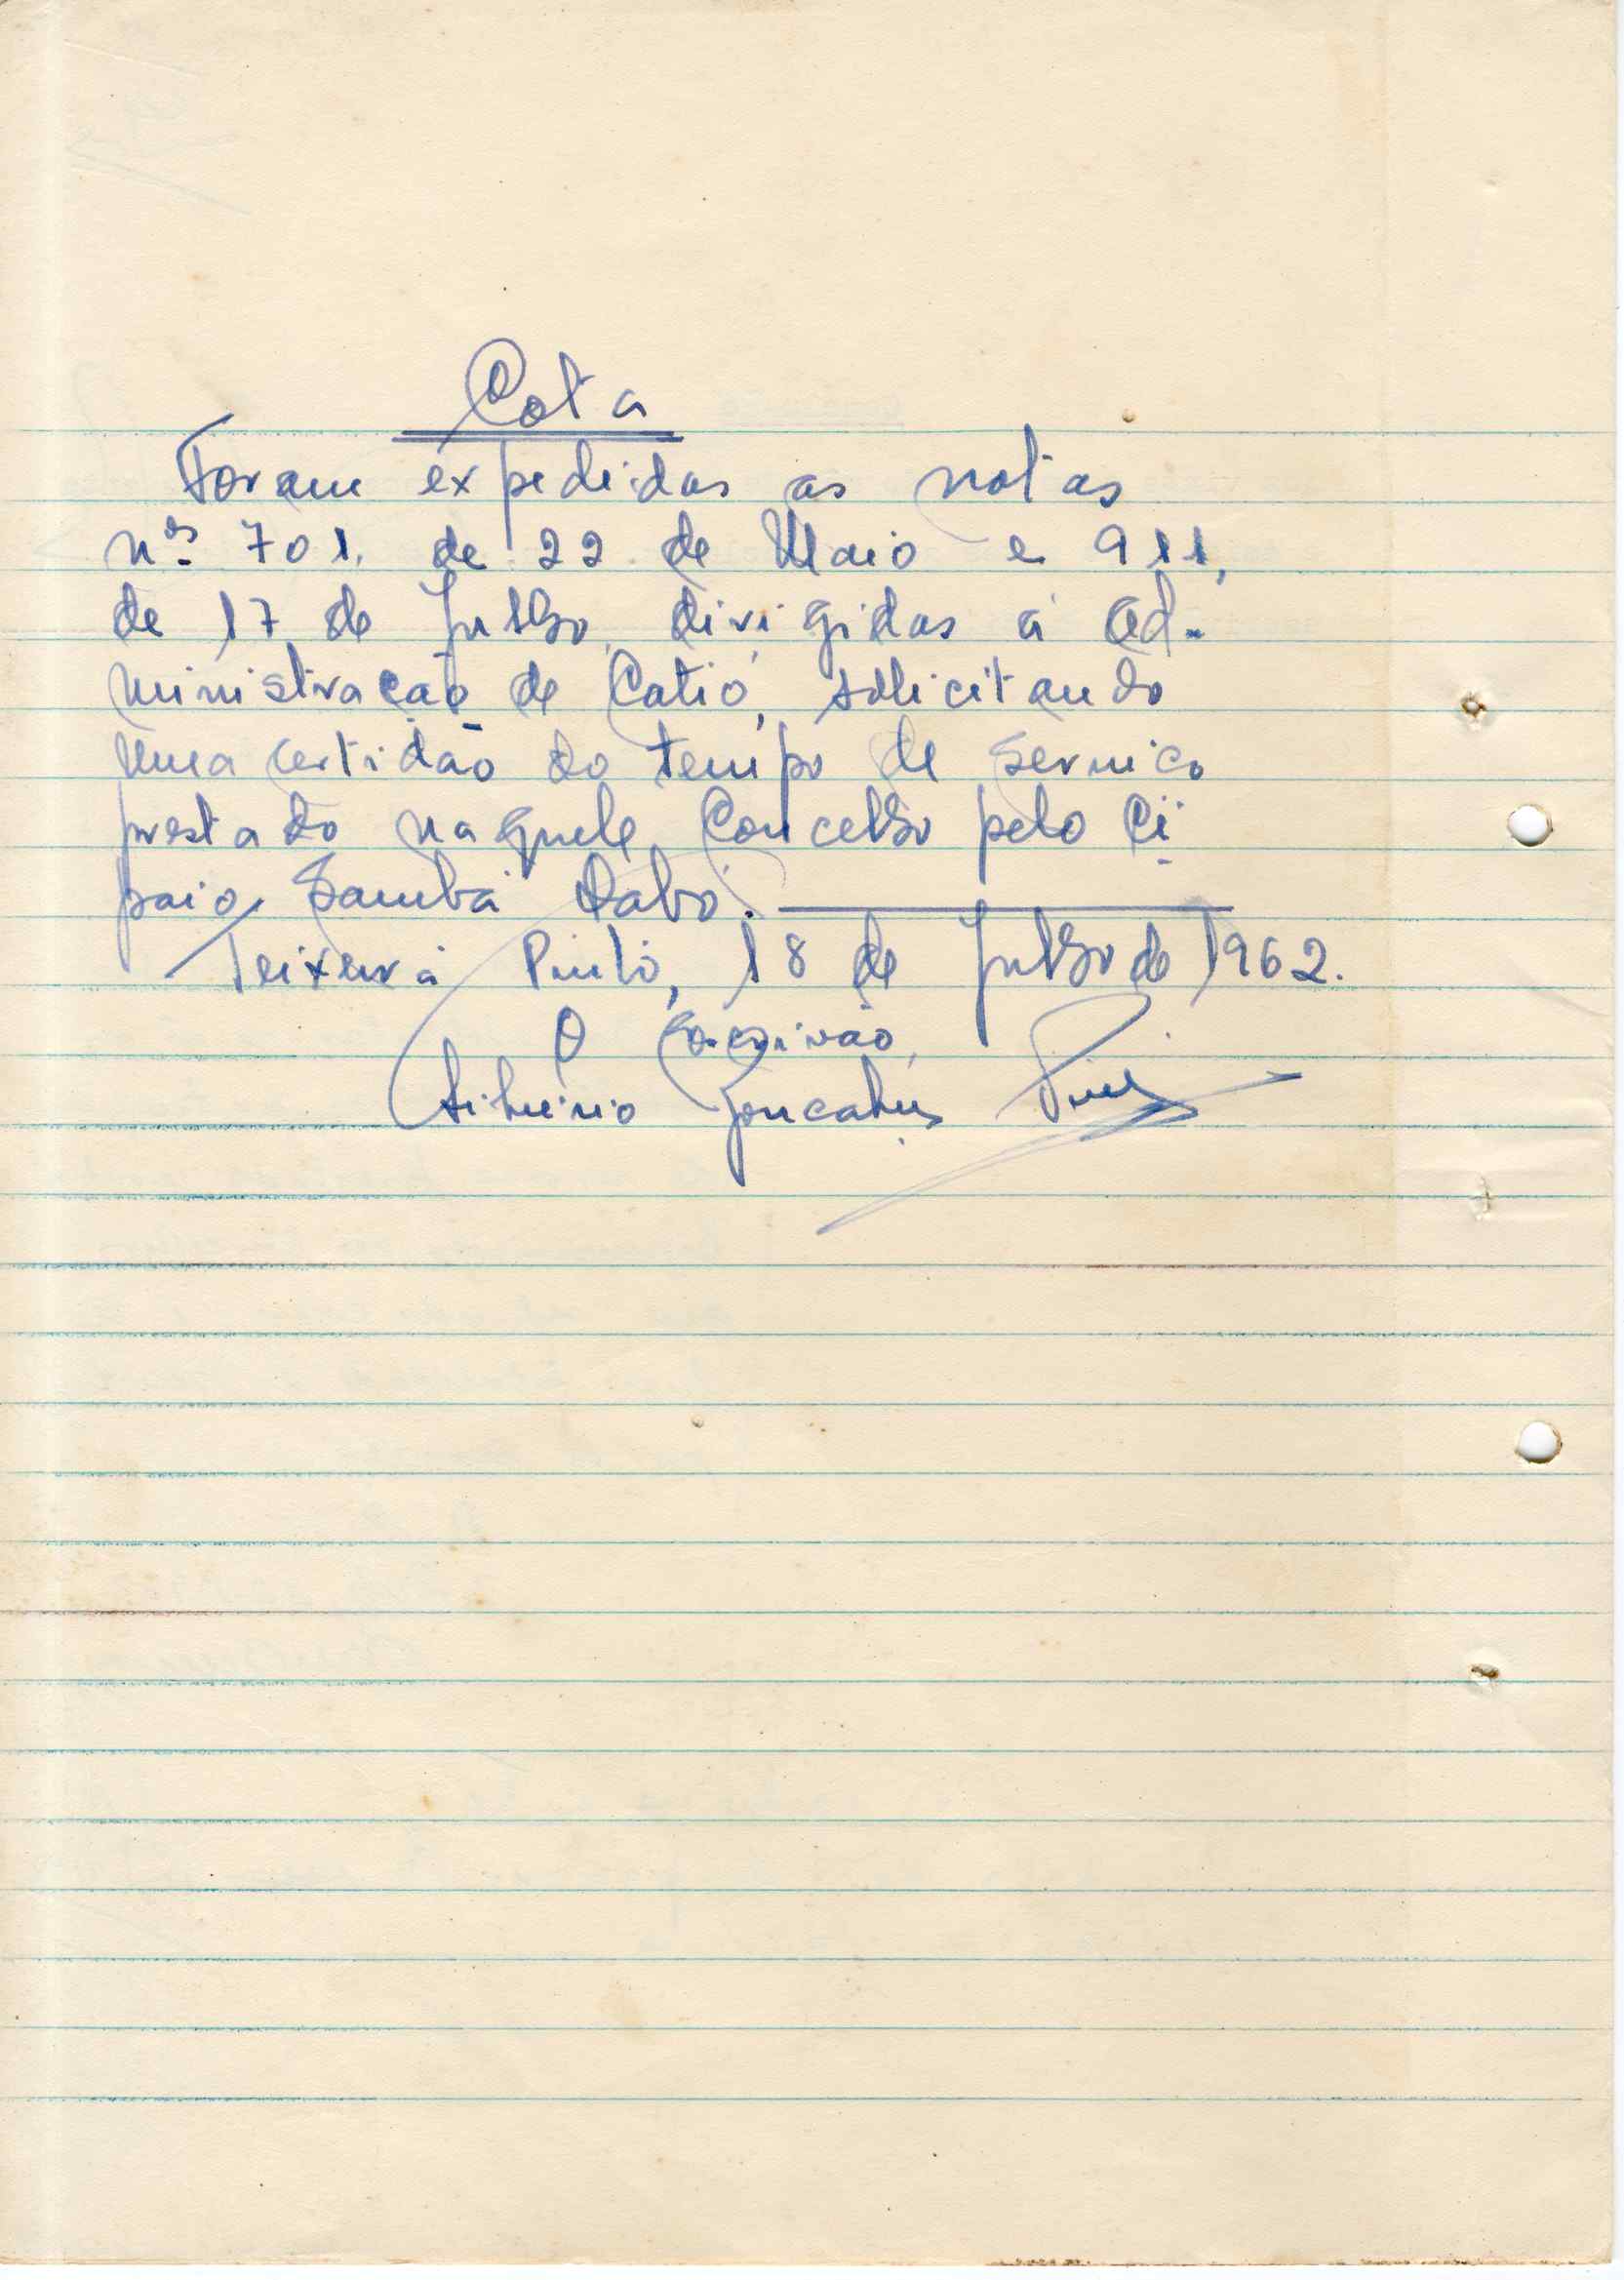 Cota
Foram expedidas as notas
nºs 701, de 22 de Maio e 911,
de 17 de Julho, dirigidas á Ad-
ministração de Catió, solicitando
uma certidão do tempo de serviço
prestado naquele Concelho pelo ci
paio Samba Dabó.
Teixeira Pinto, 18 de Julho de 1962.
O Escrivão,
Gonçalves